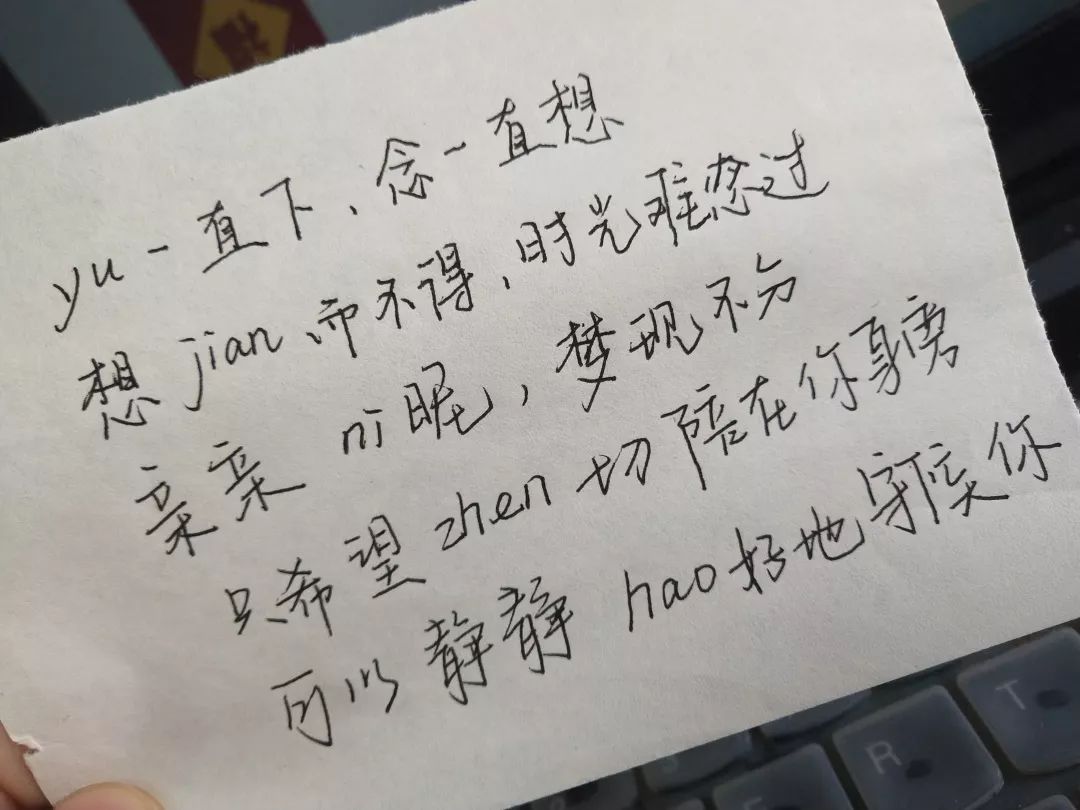 yu一直下、念一直想
想jian、而不得、时光难愁过
亲亲 ni昵，梦现不分
只希望zhen切陪在你身旁
可以静静hao好地守候你
T
R